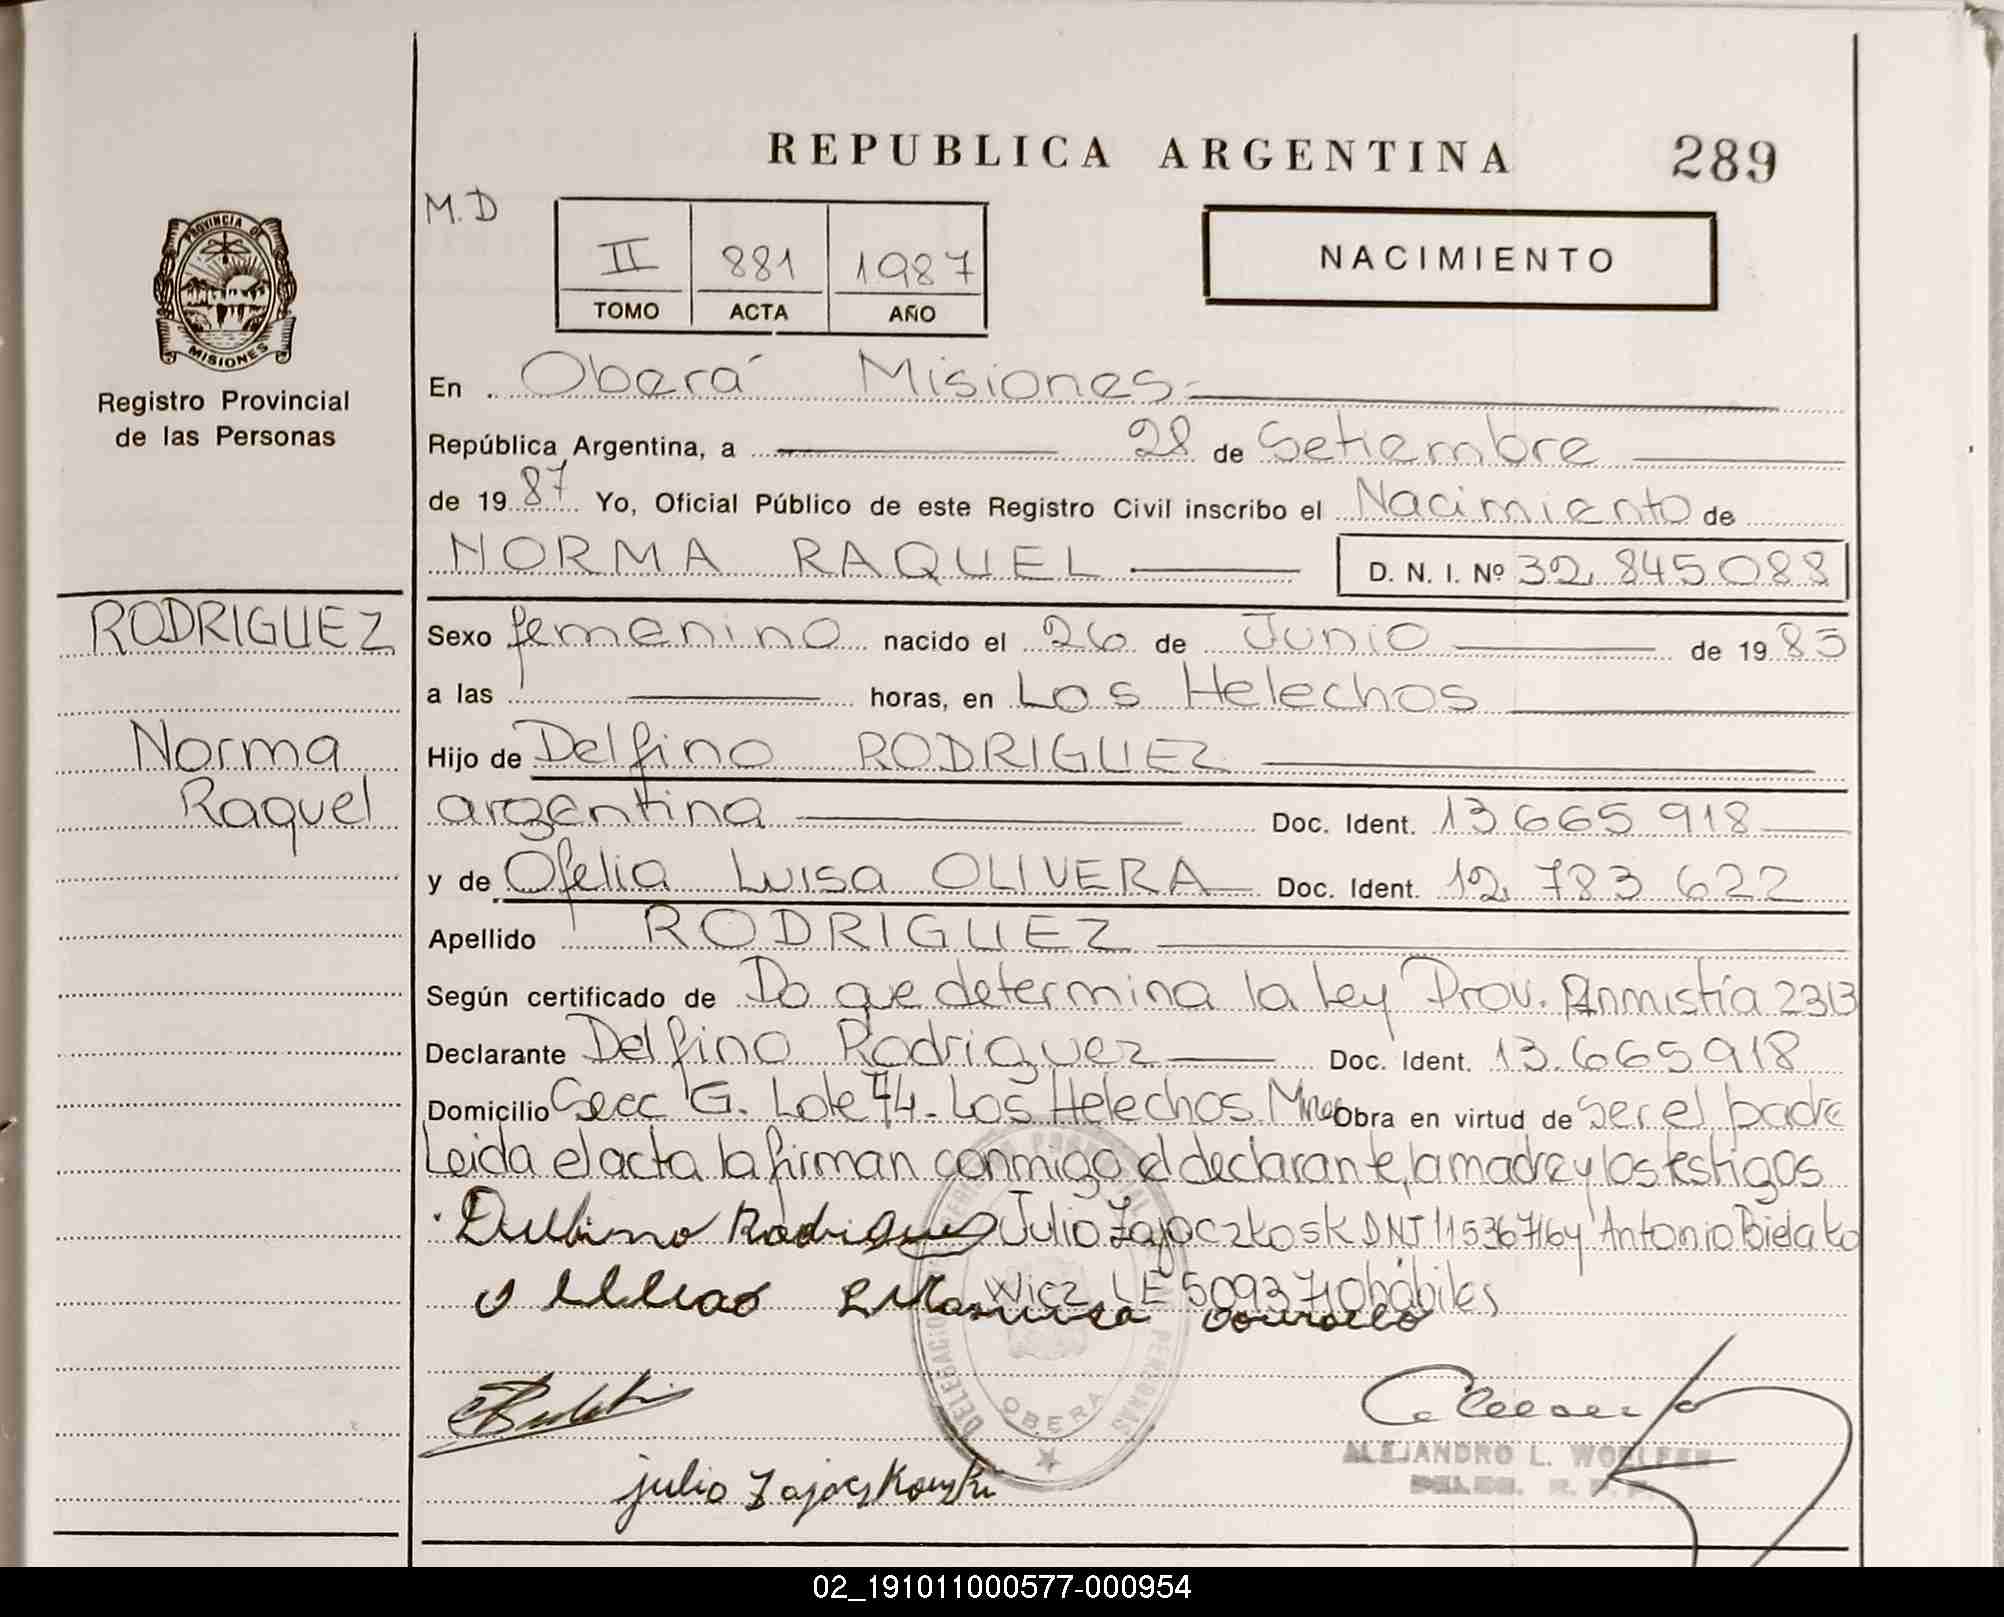 REPUBLICA ARGENTINA
289
M.D
II 881 1987
TOMO ACTA AÑO
NACIMIENTO
PROVINCIA DE
MISIONES
Registro Provincial
de las Personas
En Oberá Misiones
República Argentina, a 28 de Setiembre
de 19 87 Yo, Oficial Público de este Registro Civil inscribo el Nacimiento de
NORMA RAQUEL D. N. I. Nº 32.845088
RODRIGUEZ
Norma
Raquel
Sexo femenino nacido el 26 de Junio de 19 85
a las horas, en Los Helechos
Hijo de Delfino RODRIGUEZ
argentina Doc. Ident. 13 665 918
y de Ofelia Luisa OLIVERA Doc. Ident. 12 783 622
Apellido RODRIGUEZ
Según certificado de Do que determina la Ley Prov. Anmistía 2313
Declarante Delfino Rodriguez Doc. Ident. 13.665918
Domicilio Secc G. Lote 44. Los Helechos Mnes Obra en virtud de ser el padre
Leida el acta la firman conmigo el declarante, la madre y los testigos
Rodrigues Julio Zajaczkosk DNI 11536716 y Antonio Bielako
wicz LE 5093710 hábiles
DELEGACION
PERSONAS
OBERA
julio Zajaczkowski
ALEJANDRO L. WOELFER
02_191011000577-000954